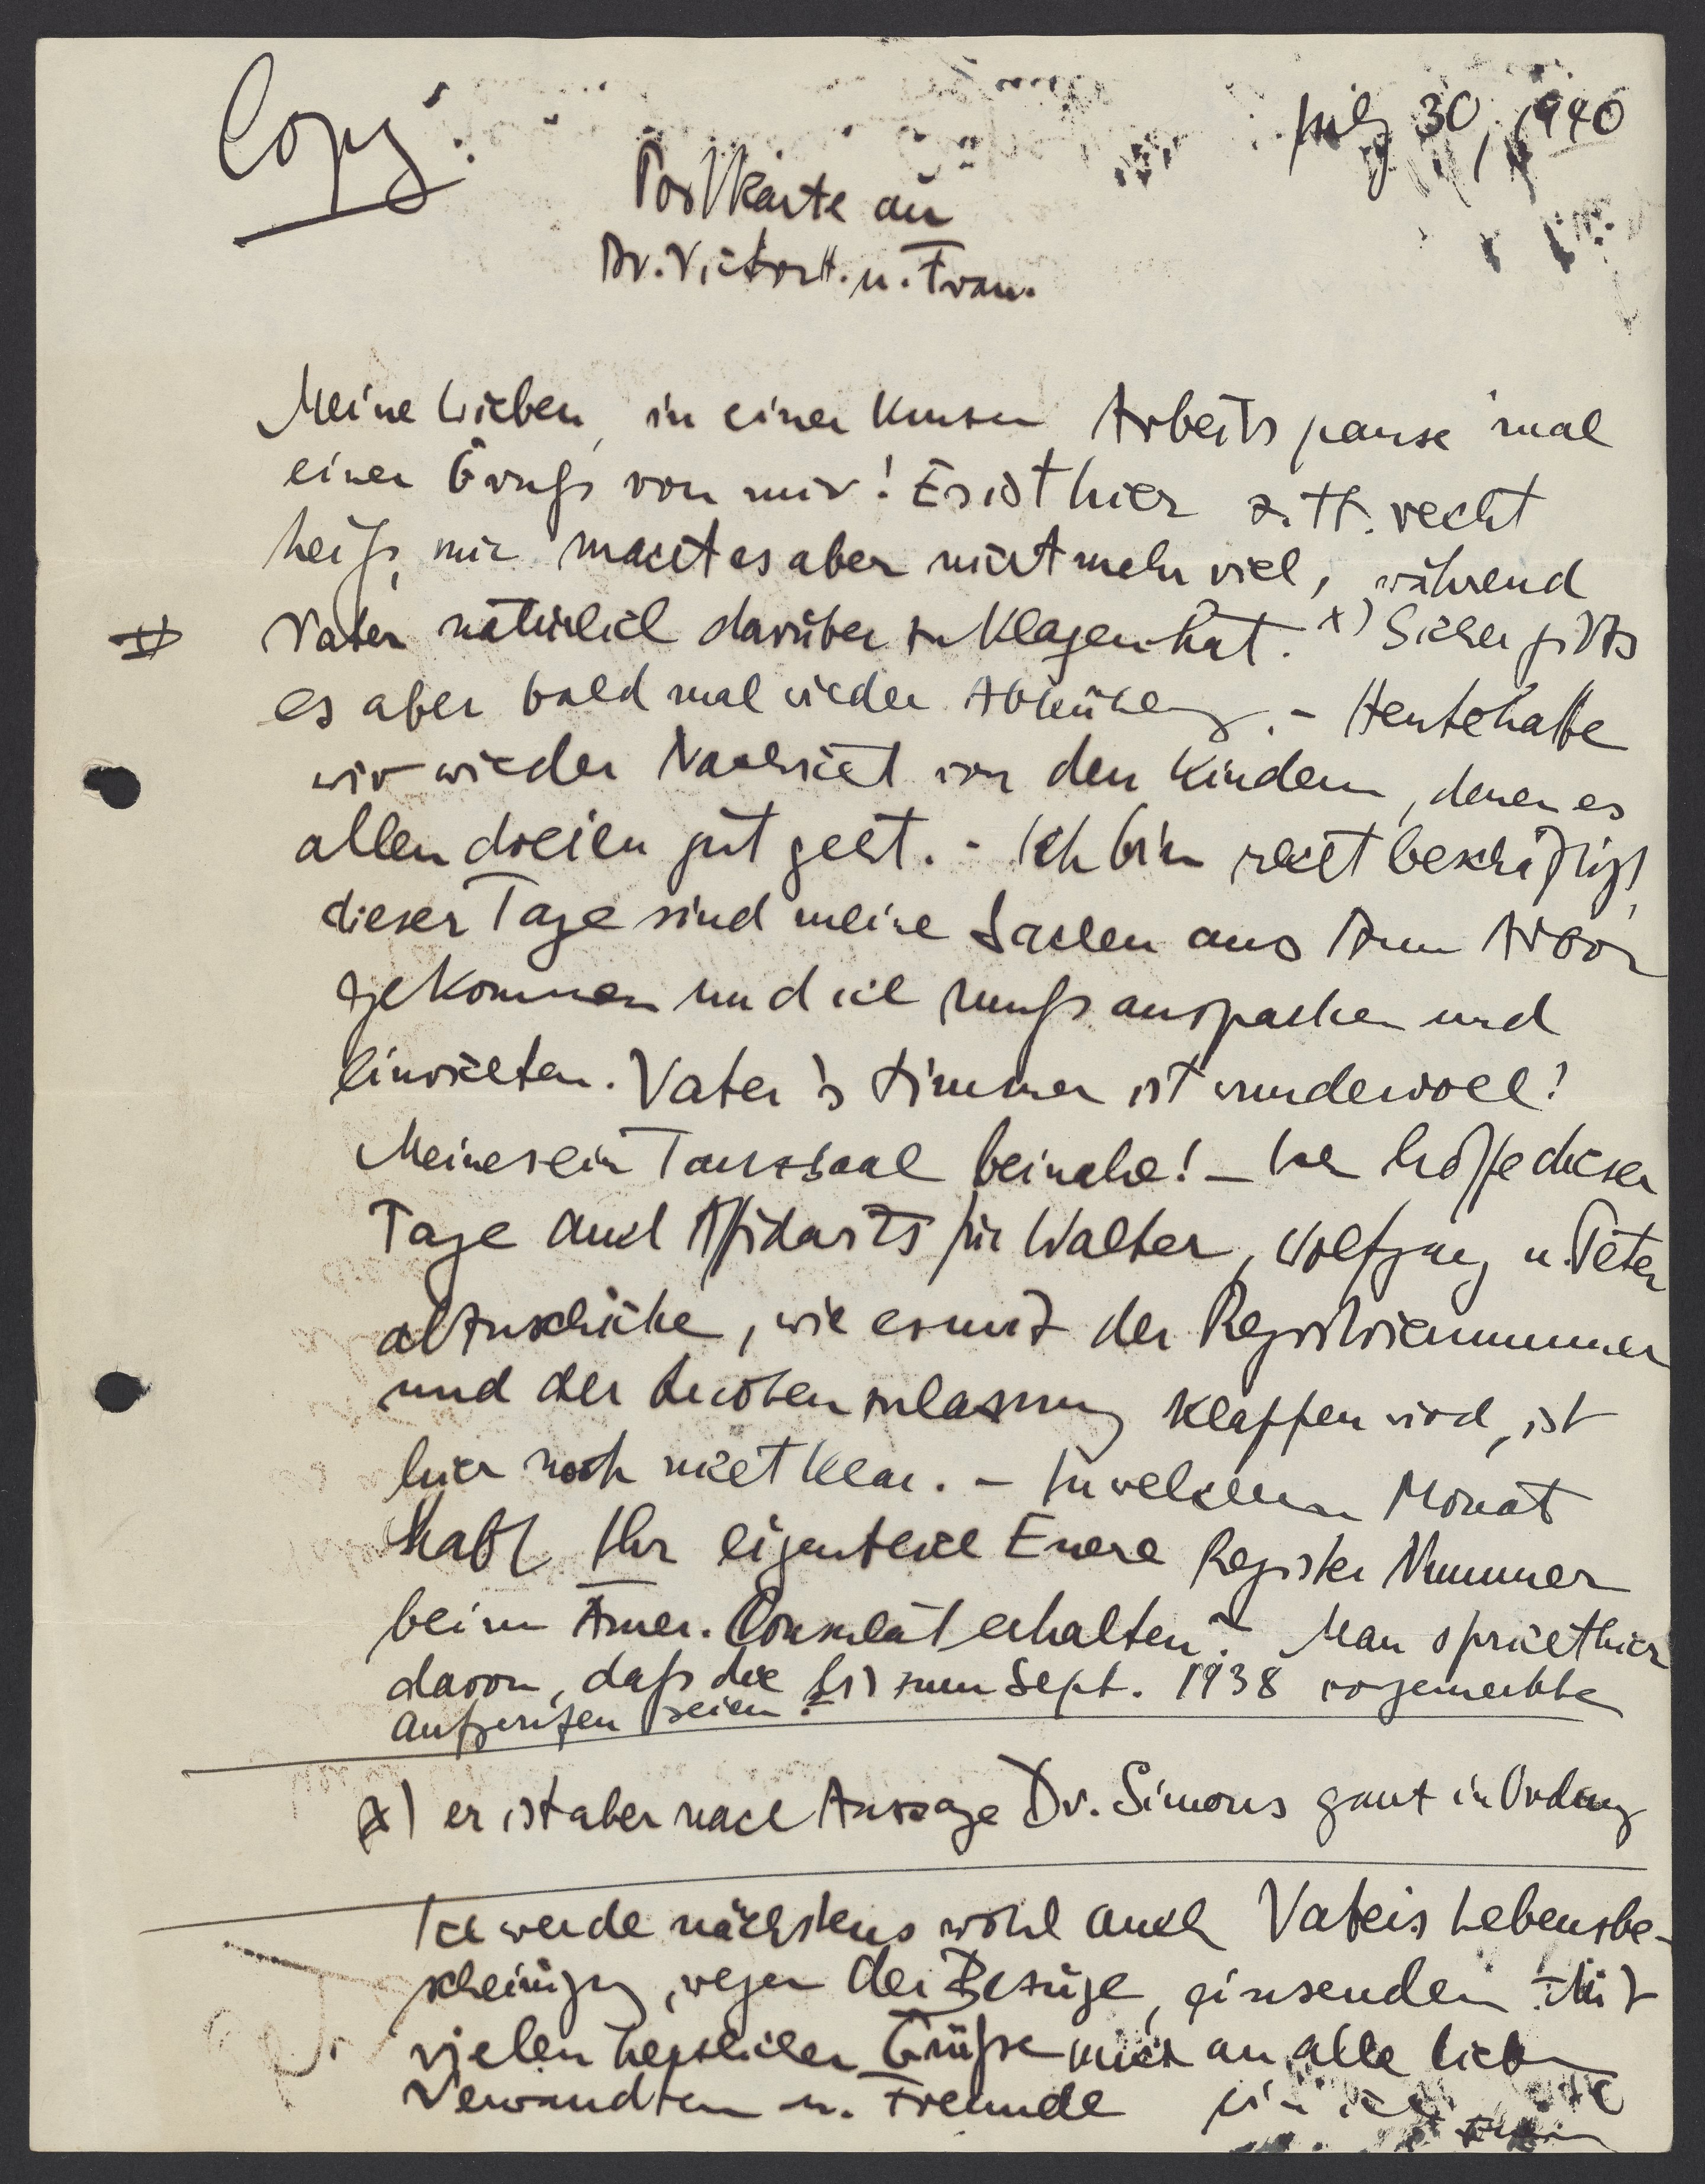 Copy.
July 30, 1940
Postkarte an
Dr. Victor H. u. Frau.
Meine Lieben, in einer kurzen Arbeitspause mal
einen Gruß von mir! Es ist hier z. Tt. recht
heiß, mir macht es aber nicht mehr viel, während
Vater natürlich darüber zu klagen hat. x) Sicher gibts
es aber bald mal wieder Abkühlung. - Heute hatte
wir wieder Nachricht von den Kindern, denen es
allen dreien gut geht. - Ich bin recht beschäftigt,
dieser Tage sind meine Sachen aus Ann Arbor
gekommen und ich muß auspacken und
einrichten. Vater's Zimmer ist wundervoll!
Meines ein Tanzsaal beinahe! - Ich hoffe dieser
Tage auch Affidavits für Walter, Wolfgang u. Peter
abzuschicke, wie es mit der Registriernummer
und der Quotenzulassung klappen wird, ist
hier noch nicht klar. - In welchem Monat
habt Ihr eigentlich Euere Register Nummer
beim Amer. Consulat erhalten? Man spricht hier
davon, daß die bis zum Sept. 1938 vorgemerkte
aufgerufen seien!
x) er ist aber nach Aussage Dr. Simons ganz in Ordnung
Ich werde nächstens wohl auch Vaters Lebensbe-
scheinigung, wegen der Bezüge, einsenden. - Mit
vielen herzlichen Grüße auch an alle lieben
Verwandten u. Freunde